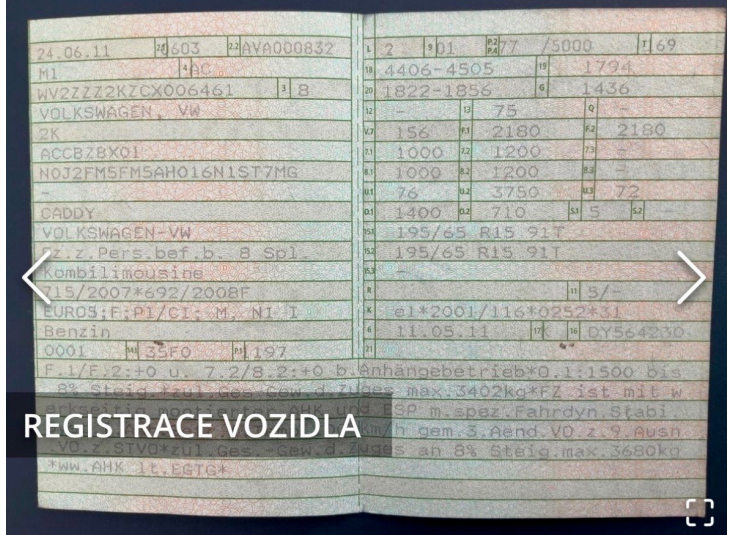 24.06.11 2.1 0603 2.2 AVA000832
M1 4 AC
WV2ZZZ2KZCX006461 3 8
VOLKSWAGEN, VW
2K
ACCBZBX01
N0J2FM5FM5AH016N1ST7MG
-
CADDY
VOLKSWAGEN-VW
Fz.z.Pers.bef.b. 8 Spl.
Kombilimousine
715/2007*692/2008F
EURO5;F;PI/CI; M, NI I
Benzin
0001 14.1 35F0 P.1 1197
L 2 9 01 P.2 P.4 77 /5000 T 169
18 4406-4505 19 1794
20 1822-1856 G 1436
12 - 13 75 Q -
V.7 156 F.1 2180 F.2 2180
7.1 1000 7.2 1200 7.3 -
8.1 1000 8.2 1200 8.3 -
U.1 76 U.2 3750 U.3 72
O.1 1400 O.2 710 S.1 5 S.2 -
15.1 195/65 R15 91T
15.2 195/65 R15 91T
15.3 -
R 11 5/-
K e1*2001/116*0252*31
6 11.05.11 17 K 16 DY564230
21
F.1/F.2:+0 u. 7.2/8.2:+0 b.Anhängebetrieb*O.1:1500 bis
8% Steig.*zul.Ges.Gew.d.Zuges max.3402kg*FZ ist mit w
AHK und ESP m.spez.Fahrdyn.Stabi.
km/h gem.3.Aend.VO.z.9.Ausn
VO.z.STVO*zul.Ges.-Gew.d.Zuges an 8% Steig.max.3680kg
*ww.AHK lt.EGTG*
REGISTRACE VOZIDLA